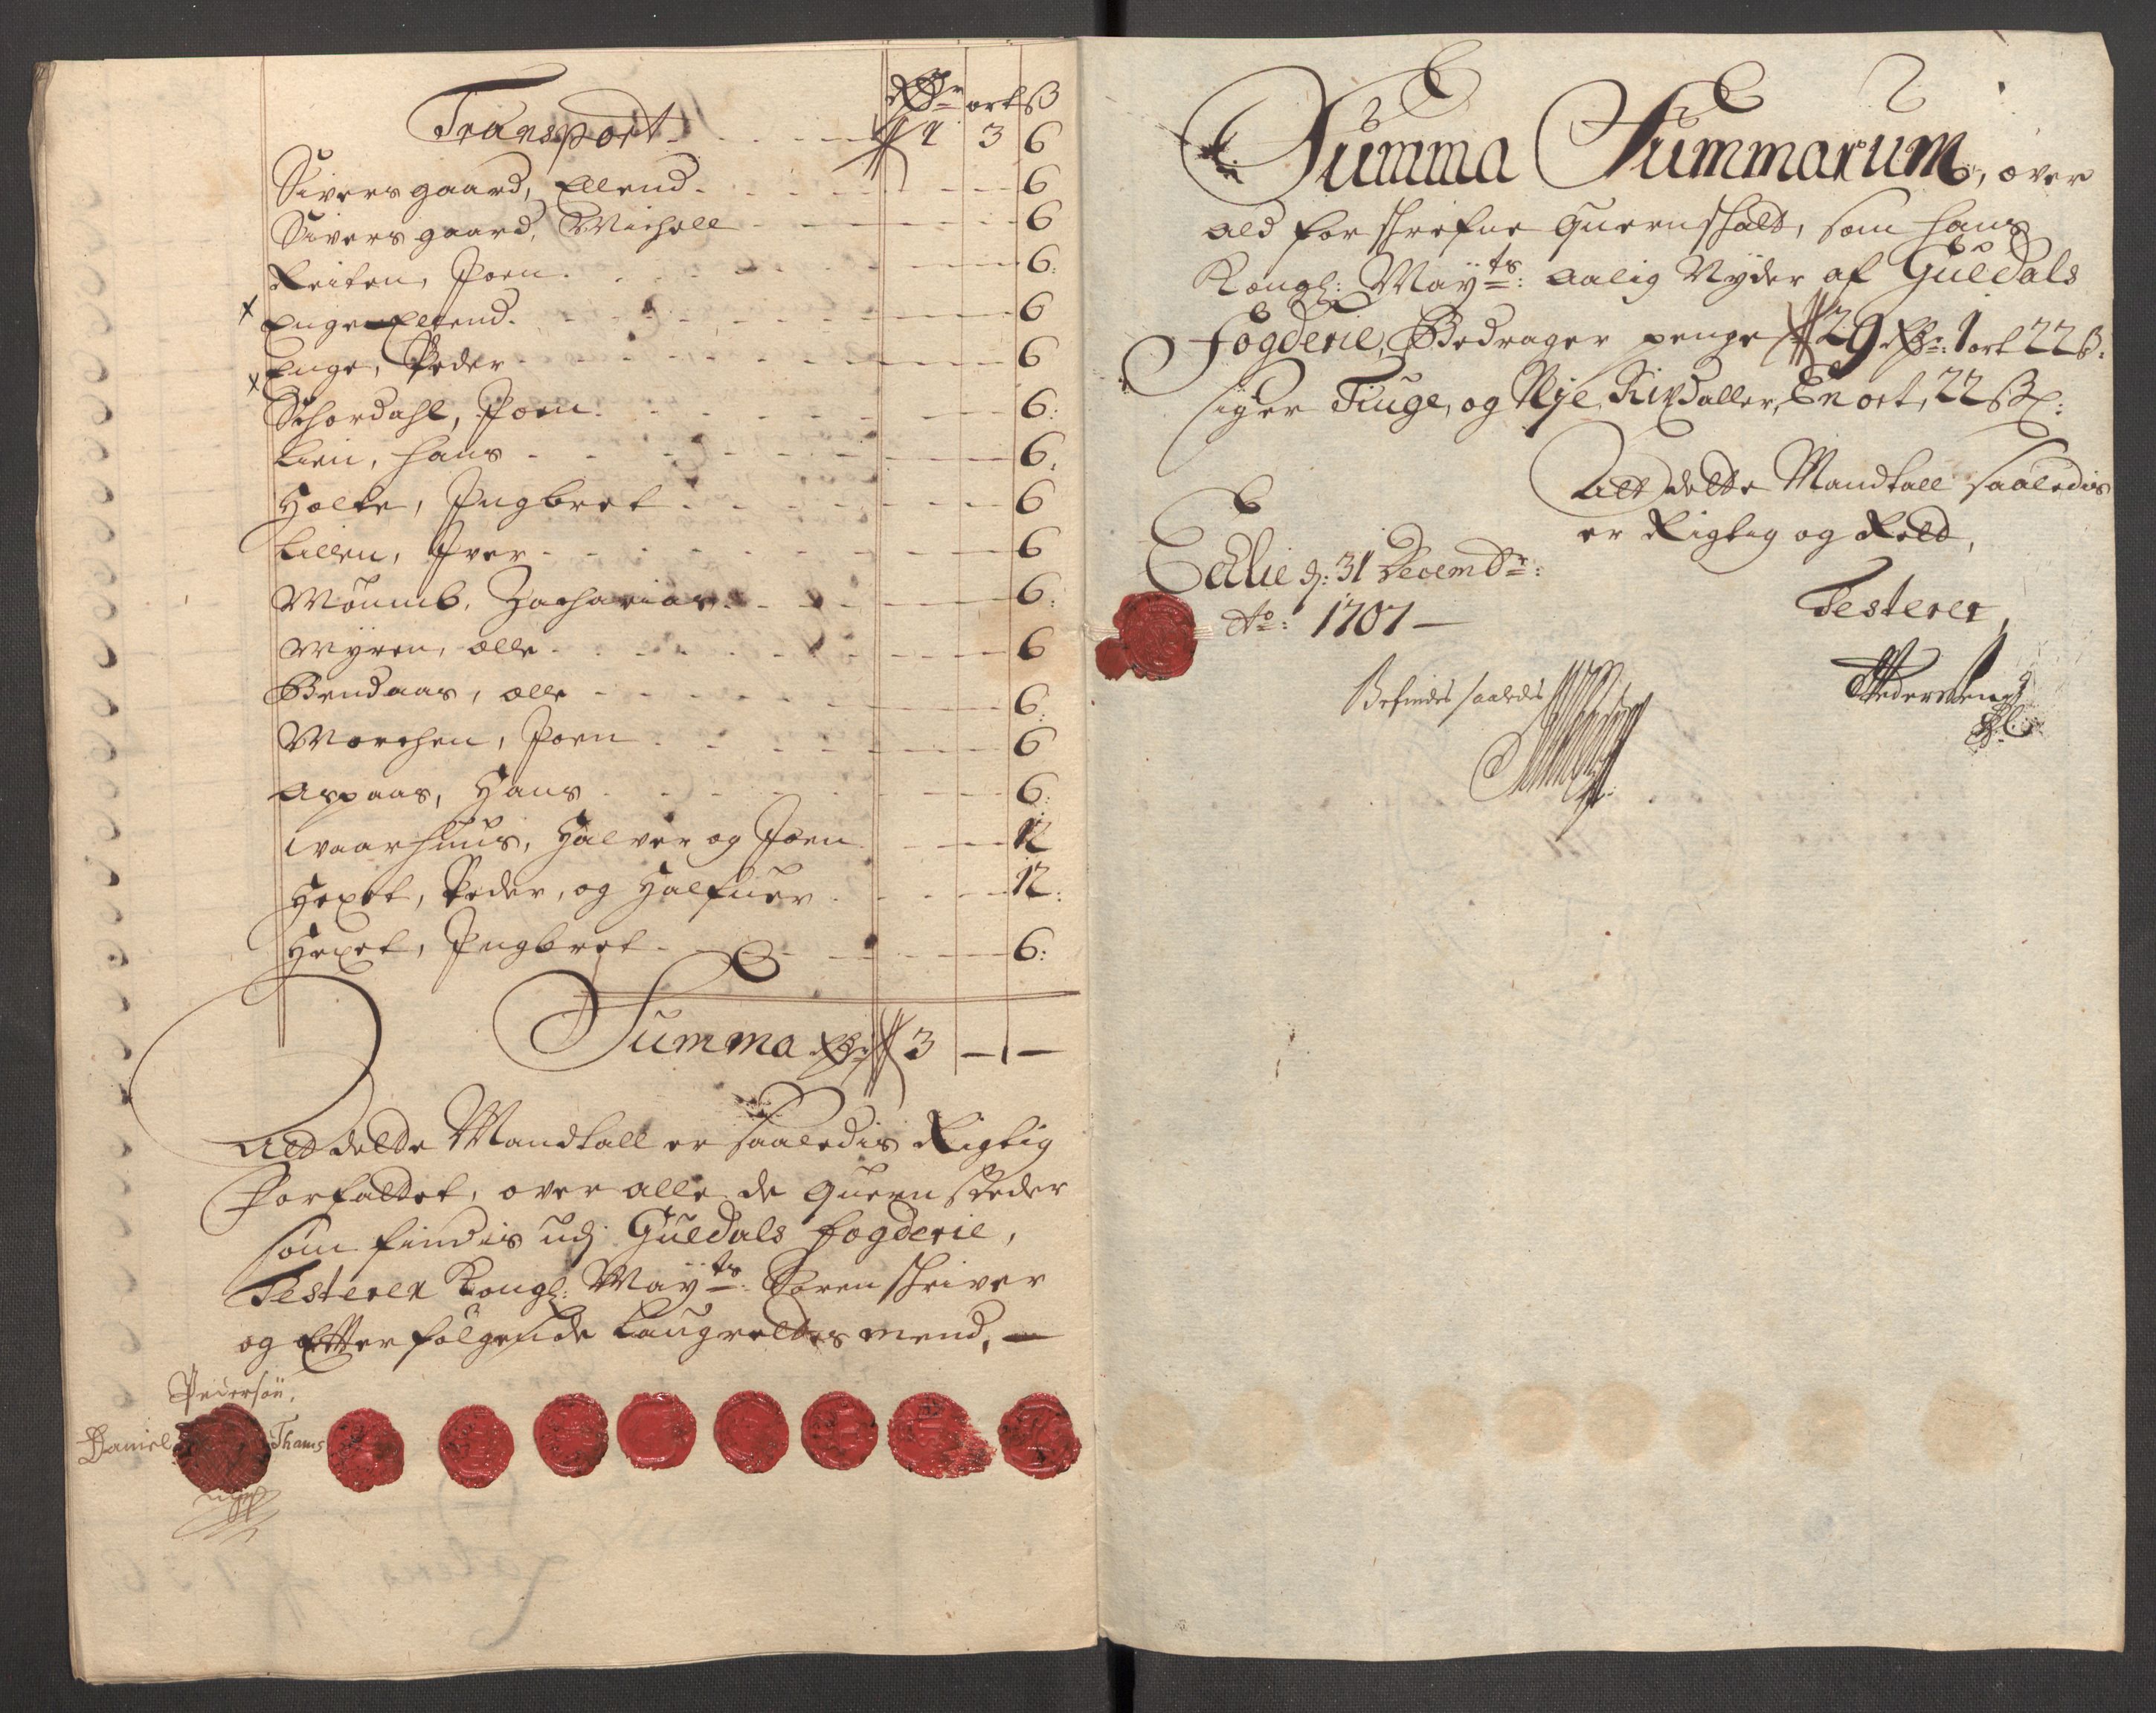 Rdr ort ß
Transport 2 3 6
Siversgaard, Ellend 6
Siversgaard, Michell 6
Reiten, Joen 6
x Enge Ellend 6
Enge, Peder 6
x Schordahl, Joen 6
Lien, hans 6
Holte, Ingbret 6
Lillen, Iver 6
Moumb, Zacharias 6
Myren, olle 6
Bendaas, olle 6
Morchen, Joen 6
Aspaas, Hans 6
waarhuus, Halver og Joen 12
Hexet, Peder, og Halfuer 12
Hexet, Ingbret 6
Summa Rdr 3 — —
Att dette Mandtall er saaledis Rigtig
forfattet, over alle de Quern steder
som findis udj Guldals fogderie,
Testerer Kongl: Mayts: Sorenskriver
og Efterfølgende Laugrettes mend,
Pedersøn.
Daniel Thams
mpp
Summa Summarum, over
ald for skrefne Quernskatt, som hans
Kongl: Mayts: aalig Nyder af Guldals
Fogderie, Bedrager penge 29 Rdr: 1 ort 22 ß.
siger Tiuge, og Nje, Rixdaller, En ort, 22 ß:
Att dette Mandtall saaledis
er Rigtig og Rett,
Eedlie d: 31 Decembr:
Ao: 1707
Testerer,
Befindes saaledes